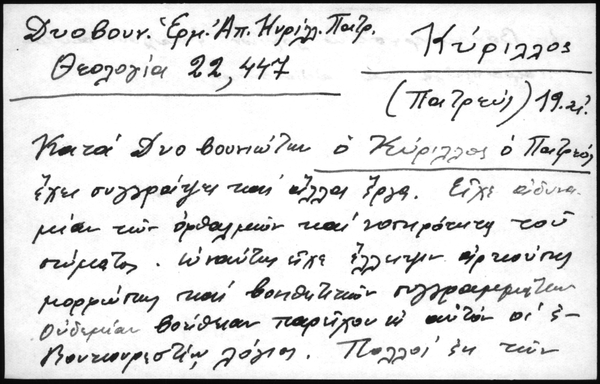 Δυοβουν. Ἑρμ. Ἀπ. Κυρίλ. Πατρ.
Θεολογία 22, 447
Κύριλλος
(Πατρεύς) 19. αἰ.
Κατά Δυοβουνιώτην ὁ Κύριλλος ὁ Πατρεύς
ἔχει συγγράψει καί ἄλλα ἔργα. Εἶχε ἀδυνα-
μίαν τῶν ὀφθαλμῶν καί νοσηρότητα τοῦ
σώματος. ὡσαύτως εἶχε ἔλλειψιν ἀρκούσης
μορφώσεως καί βοηθητικῶν συγγραμμάτων
Οὐδεμίαν βοήθειαν παρεῖχον εἰς αὐτόν οἱ ἐν
Βουκουρεστίῳ λόγιοι. Πολλοί ἐκ τῶν